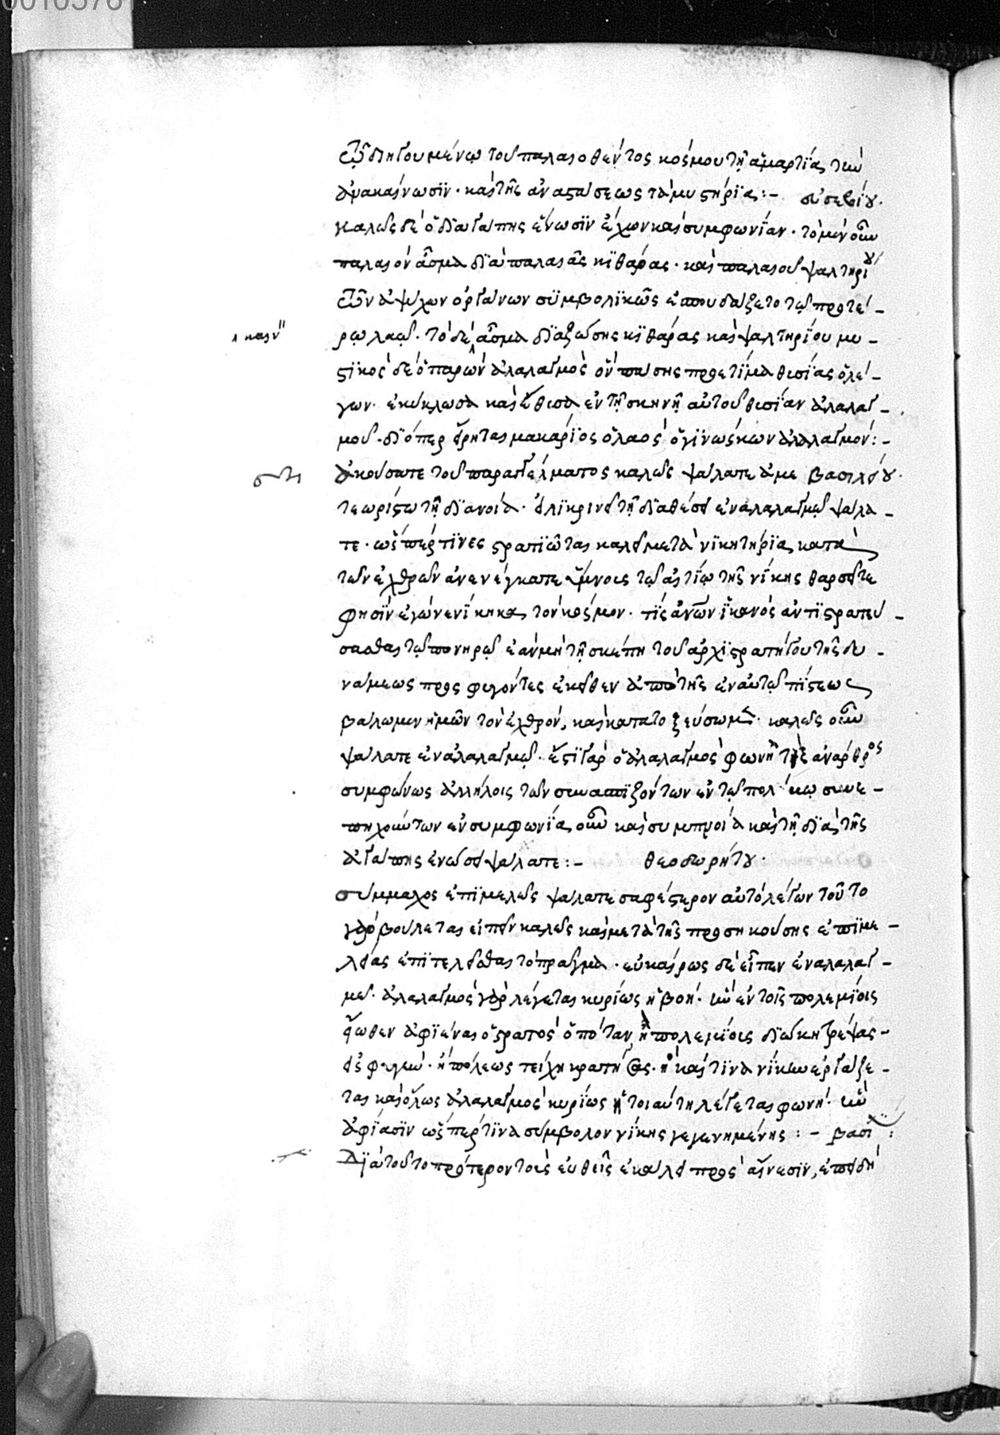 διηγουμένῳ τοῦ παλαιωθέντος κόσμου τῇ ἁμαρτίᾳ τὴν
ἀνακαίνωσιν· καὶ τῆς ἀναστάσεως τὰ μυστήρια:- εὐσεβίου·
καλῶς δὲ ὁ δι' ἀγάπης ἕνωσιν ἔχων καὶ συμφωνίαν· τὸ μὲν οὖν
παλαιὸν ᾆσμα διὰ παλαιᾶς κιθάρας· καὶ παλαιοῦ ψαλτηρίου
τῶν ἀψύχων ὀργάνων συμβολικῶς ἐπουδάζετο τῷ προτέ-
λ καιν" ρῳ λαῷ· τὸ δὲ ᾆσμα διὰ ζώσης κιθάρας καὶ ψαλτηρίου μυ-
στικὸς δὲ ὁ παρὼν ἀλαλαγμὸς ὃν πάσης προετίμα θυσίας ὁ λέ-
γων· ἐκύκλωσα καὶ ἔθυσα ἐν τῇ σκηνῇ αὐτοῦ θυσίαν ἀλαλαγ-
μοῦ· διόπερ εἴρηται μακάριος ὁ λαὸς ὁ γινώσκων ἀλαλαγμόν:-
ἀκούσατε τοῦ παραγγέλματος καλῶς ψάλατε βασιλείου·
τεωρίστῳ τῇ διανοίᾳ· εἰλικρινεῖ τῇ διαθέσει ἐν ἀλαλαγμῷ ψάλα-
τε· ὥσπερ τινες στρατιῶται καλεῖ μετὰ νικητήρια κατὰ
τῶν ἐχθρῶν ἀνενέγκατε ὕμνους τῷ αἰτίῳ τῆς νίκης θαρσεῖτε
φησὶν ἐγὼ νενίκηκα τὸν κόσμον· τίς ἀνων ἱκανὸς ἀντιστρατεύ-
σασθαι τῷ πονηρῷ ἐὰν μὴ τῇ σκέπῃ τοῦ ἀρχιστρατήγου τῆς δυ-
νάμεως προσφυγόντες ἐκεῖθεν ἀπὸ τῆς ἐν αὐτῷ πίστεως
βάλωμεν ἡμῶν τὸν ἐχθρόν, καὶ κατατοξεύσωμεν· καλῶς οὖν
ψάλατε ἐν ἀλαλαγμῷ· ἔστι γὰρ ὁ ἀλαλαγμὸς φωνή τις ἄναρθρος
συμφώνως ἀλλήλοις τῶν συνασπιζόντων ἐν τῷ πολέμῳ συνε-
πηχούντων ἐν συμφωνίᾳ οὖν καὶ συμπνοίᾳ καὶ τῇ διὰ τῆς
ἀγάπης ἑνώσει ψάλατε:- θεοδωρήτου·
σύμμαχος ἐπιμελῶς ψάλατε σαφέστερον αὐτὸ λέγων τοῦτο
γὰρ βούλεται εἰπεῖν καλῶς καὶ μετὰ τῆς προσηκούσης ἐπιμε-
λείας ἐπιτελεῖσθαι τὸ πρᾶγμα· εὐκαίρως δὲ εἶπεν ἐν ἀλαλαγ-
μῷ· ἀλαλαγμὸς γὰρ λέγεται κυρίως ἡ βοή· ἣν ἐν τοῖς πολεμίοις
εἴωθεν ἀφιέναι ὁ στρατὸς ὁπόταν ἢ πολεμίους διώκῃ τρέψας
εἰς φυγήν· ἢ πόλεως τείχη κρατήσας· ἢ καὶ τινὰ νίκην ἐργάζε-
ται καὶ ὅλως ἀλαλαγμὸς κυρίως ἡ τοιαύτη λέγεται φωνή· ἣν
ἀφίασιν ὥσπερ τινὰ σύμβολον νίκης γεγενημένης:- βασι:
Διὰ τοῦτο πρότερον τοὺς εὐθεῖς ἐκάλει πρὸς αἴνεσιν, ἐπειδὴ